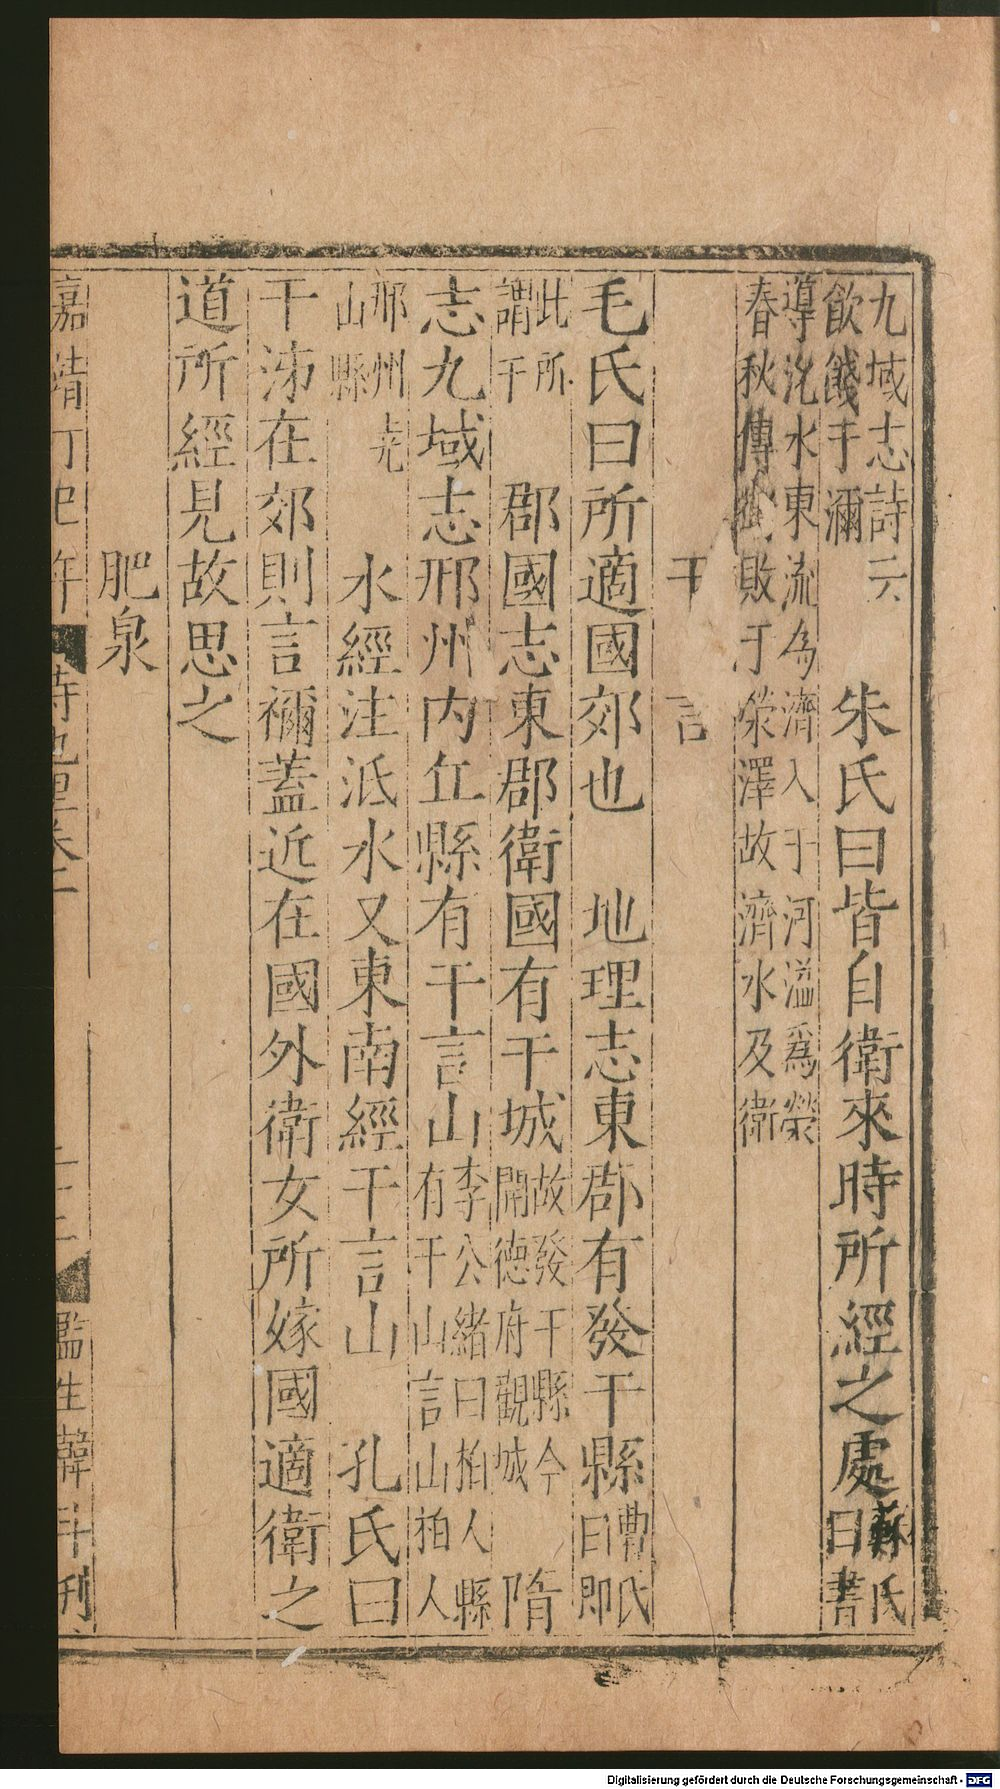 九域志詩云
飲餞于濔
朱氏曰皆自衛來時所經之處
蘇氏
曰書
導沇水東流為濟入于河溢爲滎
春秋傳敗于滎澤故濟水及衛
干言
毛氏曰所適國郊也 地理志東郡有發干縣
曹氏
曰即
此所
謂干
郡國志東郡衛國有干城
故發干縣今
開德府觀城
隋
志九域志邢州內丘縣有干言山
李公緒曰柏人縣
有干山言山柏人
邢州堯
山縣
水經注泜水又東南經干言山 孔氏曰
干泲在郊則言禰蓋近在國外衛女所嫁國適衛之
道所經見故思之
肥泉
嘉靖丁巳年
詩地理卷二
二十二
監生韓斗刋
Digitalisierung gefördert durch die Deutsche Forschungsgemeinschaft - DFG